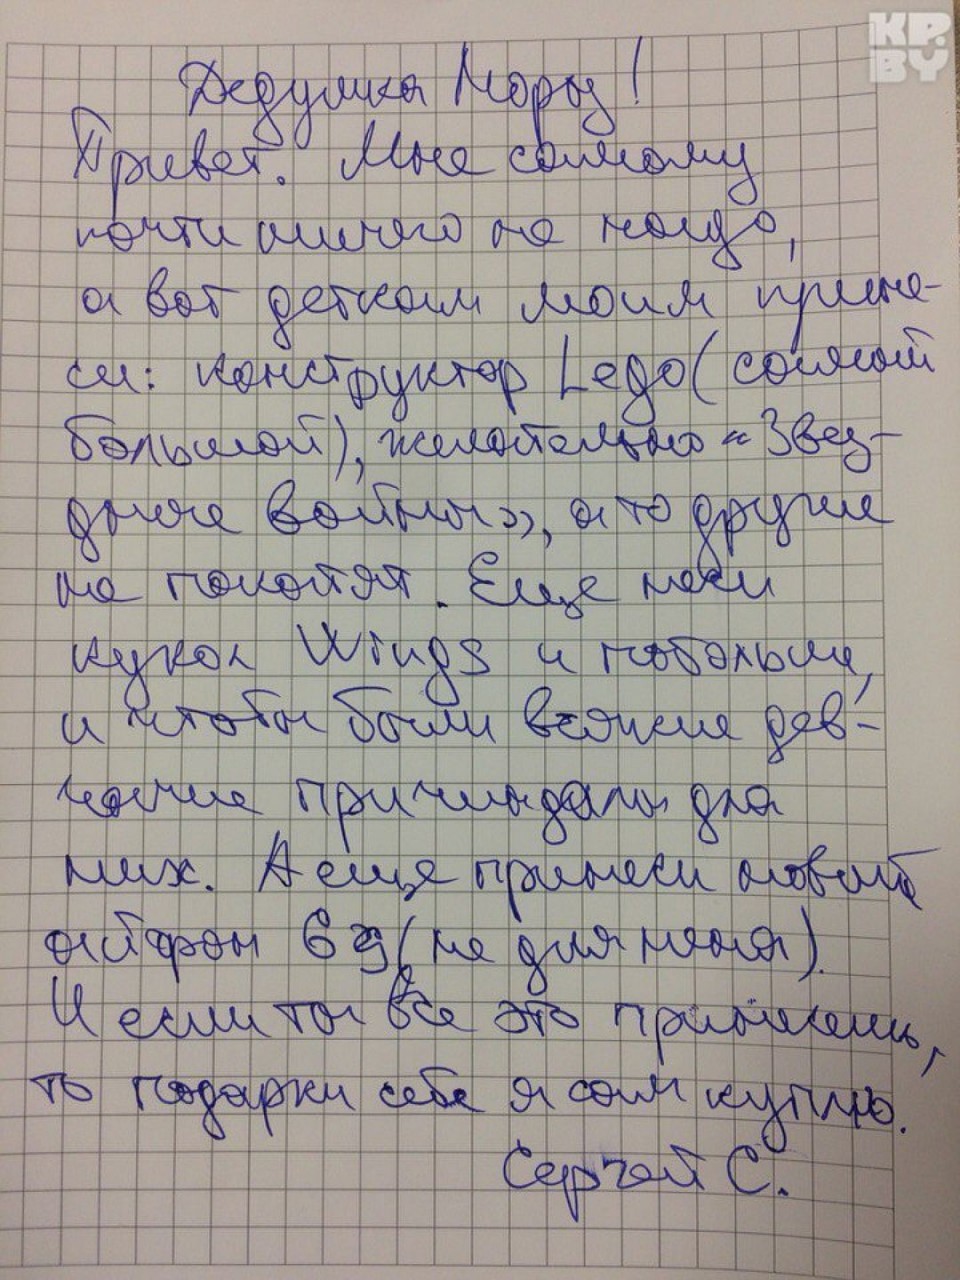 KP.
BY
Дедушка Мороз!
Привет. Мне самому
почти ничего не надо,
а вот деткам моим прине-
си: конструктор Lego (самый
большой), желательно «Звёзд-
ные войны», а то другие
не покатят. Еще неси
кукол Wings и побольше,
и чтобы были всякие дев-
чачие причиндалы для
них. А еще принеси новый
айфон 6 (не для меня).
И если ты все это принесешь,
то подарки себе я сам куплю.
Сергей С.